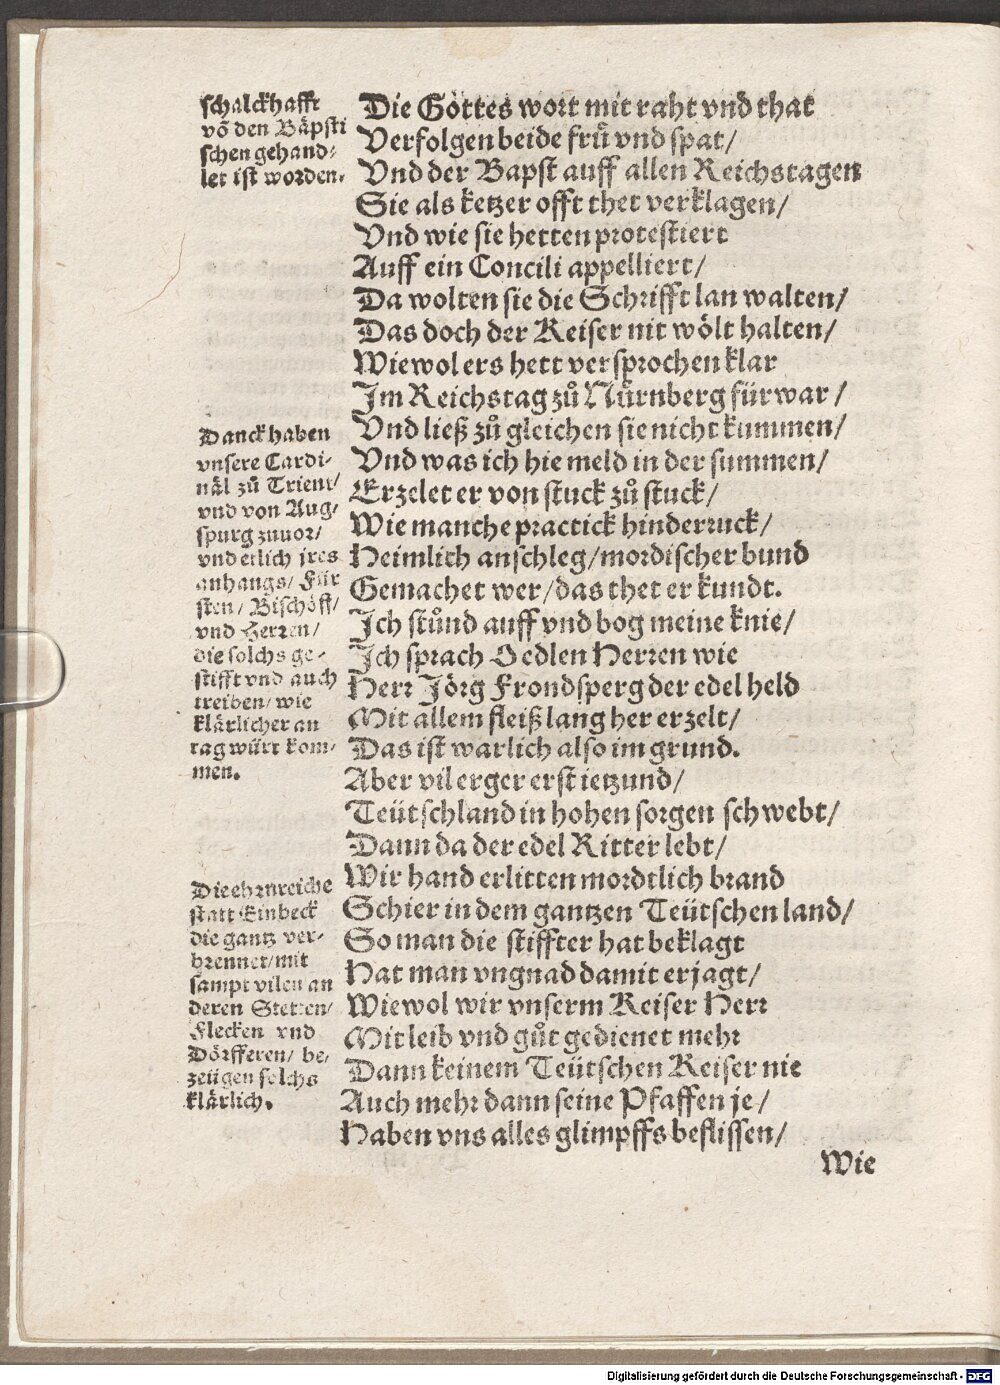 schalckhafft
võ den Bäpsti
schen gehand-
let ist worden.
Die Gottes wort mit raht vnd that
Verfolgen beide frü vnd spat/
Vnd der Bapst auff allen Reichstagen
Sie als ketzer offt thet verklagen/
Vnd wie sie hetten protestiert
Auff ein Concili appelliert/
Da wolten sie die Schrifft lan walten/
Das doch der Keiser nit wölt halten/
Wiewol ers hett versprochen klar
Im Reichstag zů Nürnberg fürwar/
Vnd ließ zů gleichen sie nicht kummen/
Vnd was ich hie meld in der summen/
Erzelet er von stuck zů stuck/
Wie manche practick hinderruck/
Heimlich anschleg/mordischer bund
Gemachet wer/das thet er kundt.
Danck haben
vnsere Cardi-
näl zů Trient/
vnd von Aug-
spurg zuuor/
vnd etlich jres
anhangs/ Für
sten/ Bischöff/
vnd Herren/
die solchs ge-
stifft vnd auch
treiben/ wie
klärlicher an
tag würt kom-
men.
Ich stůnd auff vnd bog meine knie/
Ich sprach O edlen Herren wie
Herr Jörg Frondsperg der edel held
Mit allem fleiß lang her erzelt/
Das ist warlich also im grund.
Aber vil erger erst ietzund/
Teütschland in hohen sorgen schwebt/
Dann da der edel Ritter lebt/
Wir hand erlitten mordtlich brand
Schier in dem gantzen Teütschen land/
So man die stiffter hat beklagt
Hat man vngnad damit erjagt/
Wiewol wir vnserm Keiser Herr
Mit leib vnd gůt gedienet mehr
Dann keinem Teütschen Keiser nie
Auch mehr dann seine Pfaffen je/
Haben vns alles glimpffs beflissen/
Die ehrnreiche
statt Einbeck
die gantz ver-
brennet/mit
sampt vilen an
deren Stetten/
Flecken vnd
Dörfferen/ be-
zeügen solchs
klärlich.
Wie
Digitalisierung gefördert durch die Deutsche Forschungsgemeinschaft - DFG